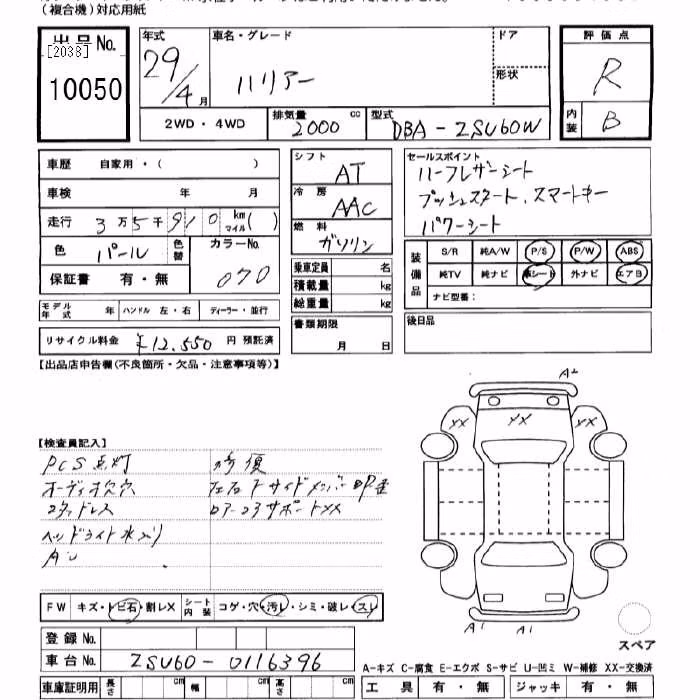 (複合機)対応用紙
出品No. [2038]
10050
年式 29/4月
車名・グレード ハリアー
ドア
形状
評価点 R
内装 B
2WD・4WD
排気量 2000 cc
型式 DBA-ZSU60W
車歴 自家用・( )
車検 年 月
走行 3万5千910 km マイル( )
色 パール 色替
カラーNo. 070
保証書 有・無
モデル年式 年 ハンドル 左・右 ディーラー・並行
リサイクル料金 ¥12.550 円 預託済
シフト AT
冷房 AAC
燃料 ガソリン
乗車定員 名
積載量 kg
総重量 kg
書類期限 月 日
セールスポイント
ハーフレザーシート
プッシュスタート、スマートキー
パワーシート
装備品 S/R 純A/W P/S P/W ABS
純TV 純ナビ 革シート 外ナビ エアB
ナビ型番:
後日品
【出品店申告欄(不良箇所・欠品・注意事項等)】
【検査員記入】
PCS点灯
オーディオ欠穴
コアットレス
ヘッドライト水入り
AU
修復
コアサポートXX
A2
XX XX XX
A1 A1
スペア
FW キズ・トビ石・割レX シート内装 コゲ・穴・汚レ・シミ・破レ・スレ
登録No.
車台No. ZSU60-0116396
車庫証明用 長さ cm 幅 cm 高さ cm
A-キズ C-腐食 E-エクボ S-サビ U-凹ミ W-補修 XX-交換済
工具 有・無 ジャッキ 有・無